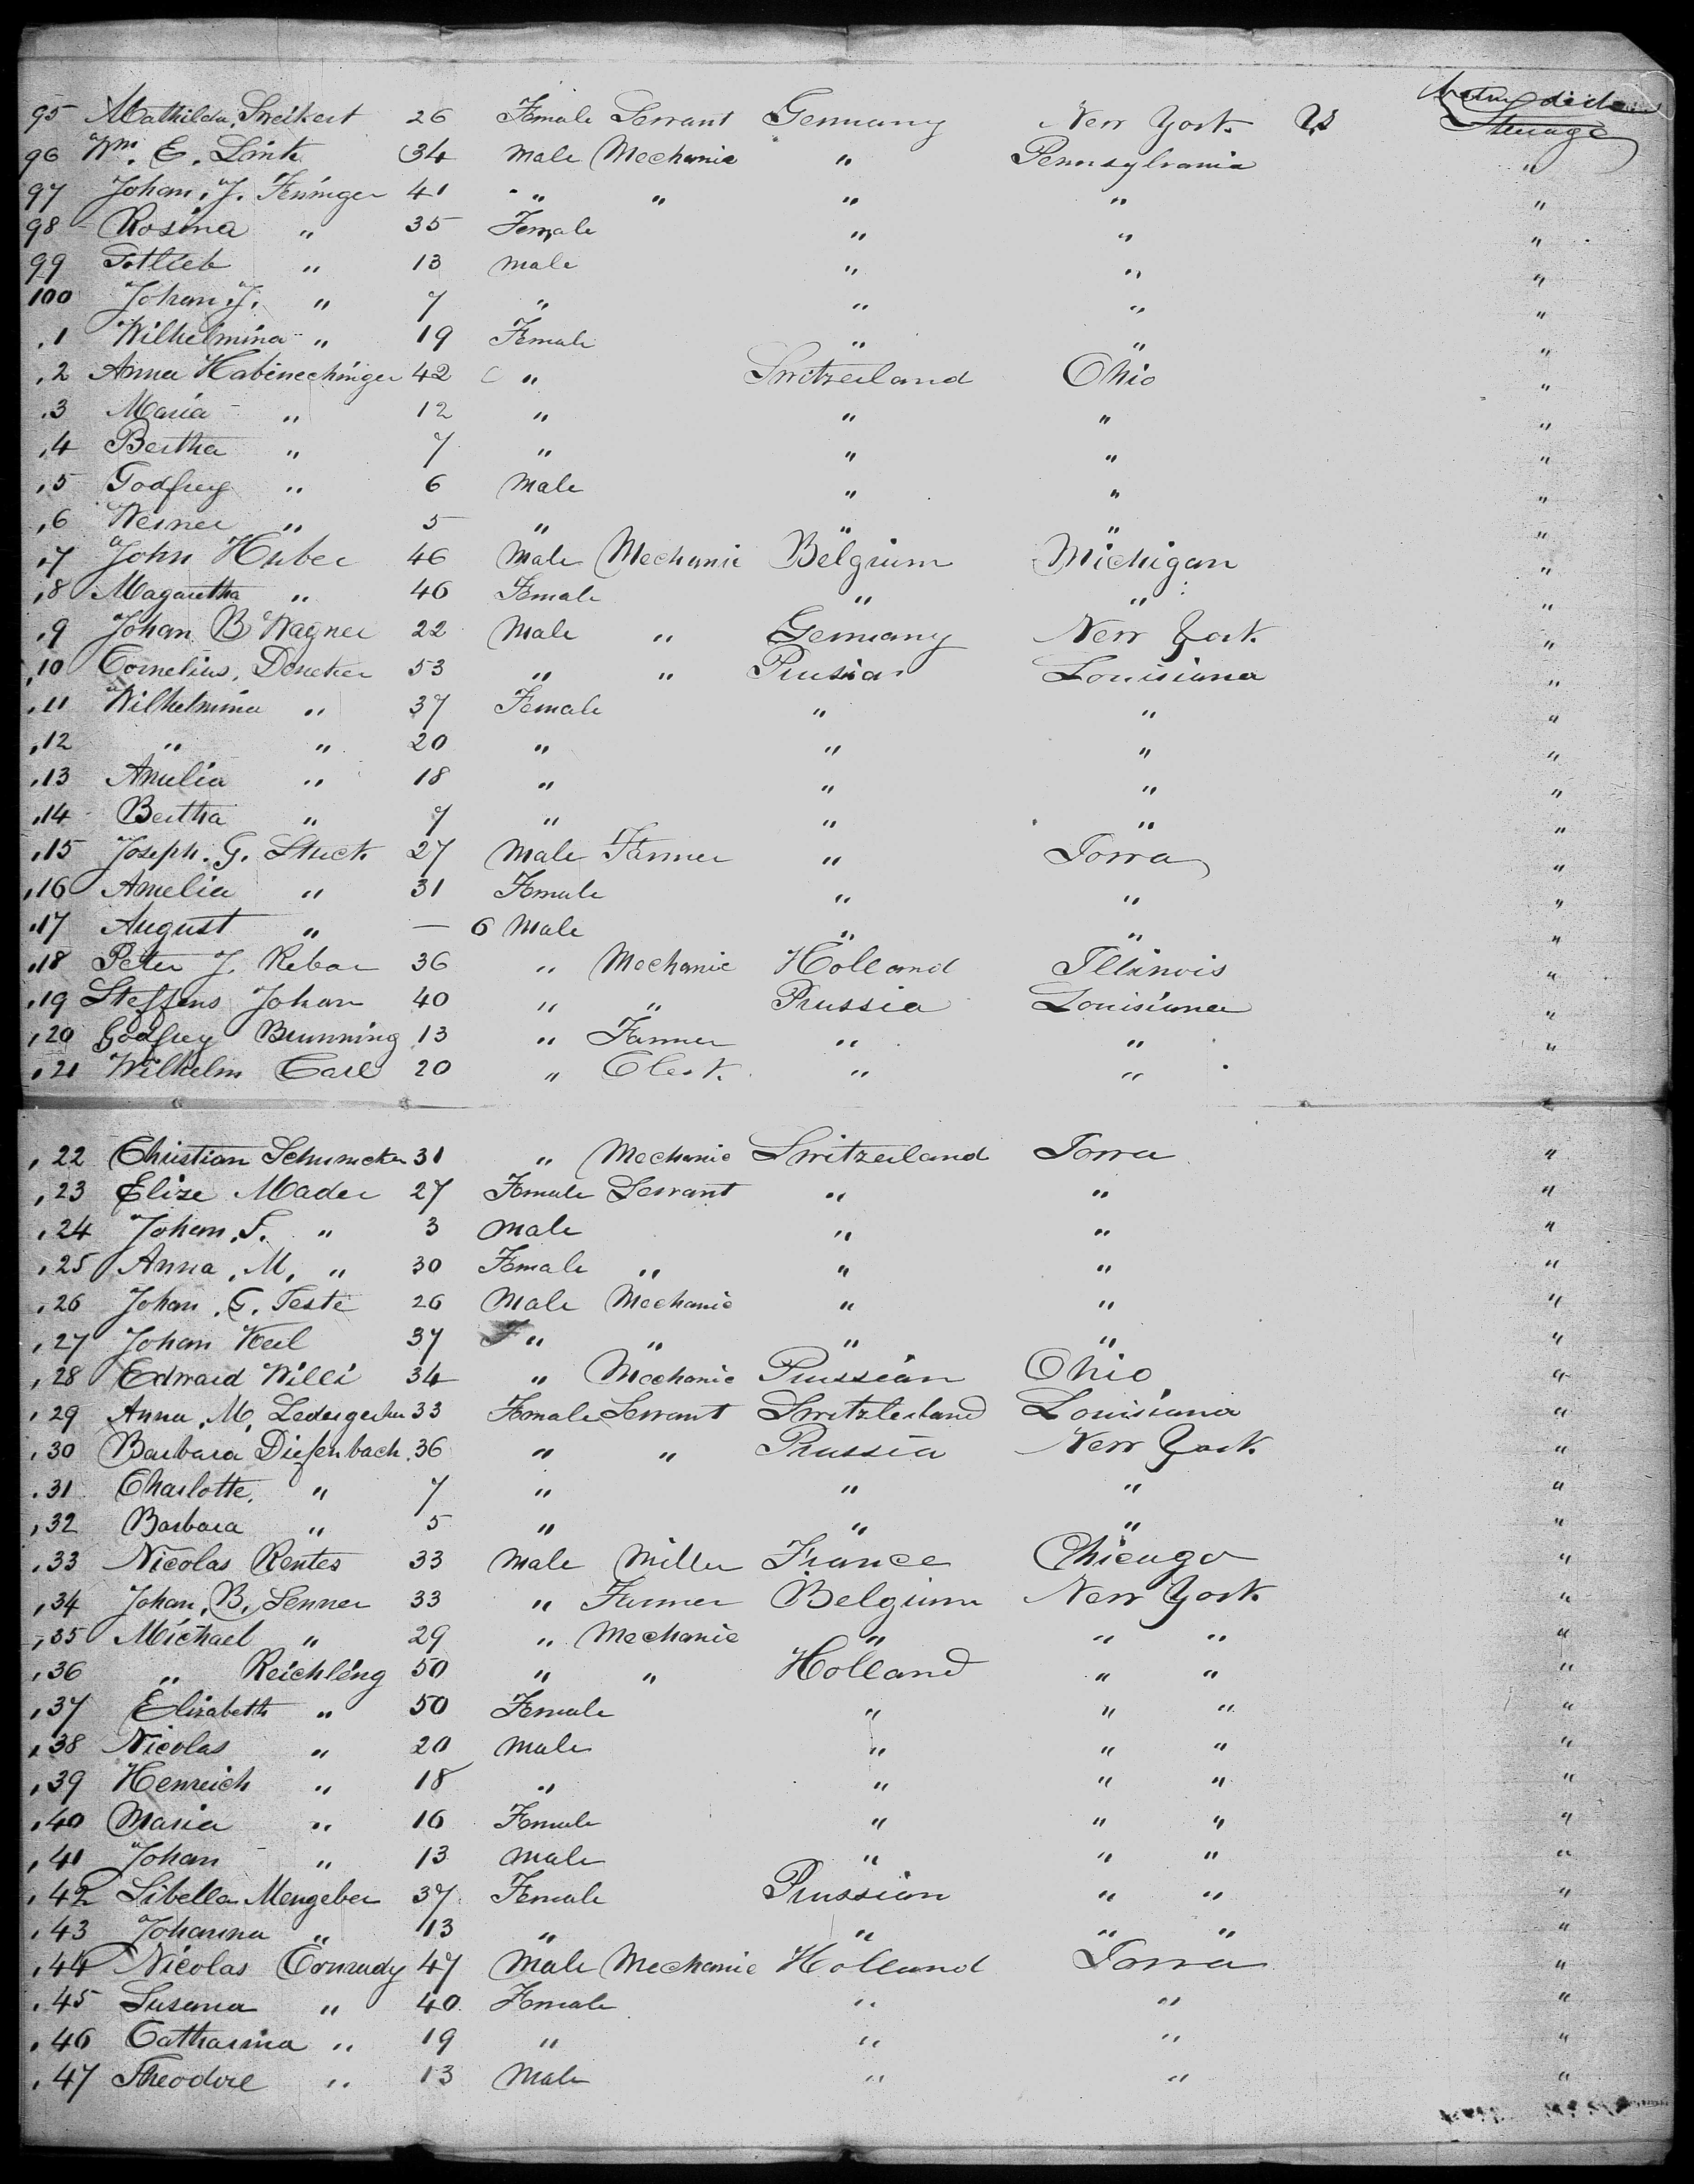 95 Mathilda, Sweikert 26 Female Servant Germany New York US Steerage
96 Wm. E. Link 34 Male Mechanic " Pennsylvania "
97 Johan, J. Feninger 41 " " " " "
98 Rosina " 35 Female " " "
99 Gottlieb " 13 Male " " "
100 Johan J. " 7 " " " "
,1 Wilhelmina " 19 Female " " "
,2 Anna Habinechinger 42 " Switzerland Ohio "
,3 Maria " 12 " " " "
,4 Bertha " 7 " " " "
,5 Godfrey " 6 Male " " "
,6 Werner " 5 " " " "
,7 John Huber 46 Male Mechanic Belgium Michigan "
,8 Magaretha " 46 Female " " "
,9 Johan B Wagner 22 Male " Germany New York "
,10 Cornelius, Dencker 53 " " Prusian Louisiana "
,11 Wilhelmina " 37 Female " " "
,12 " " 20 " " " "
,13 Amelia " 18 " " " "
,14 Bertha " 7 " " " "
,15 Joseph. G. Stuck 27 Male Farmer " Iowa "
,16 Amelia " 31 Female " " "
,17 August " — 6 Male " " "
,18 Peter J. Rebar 36 " Mechanic Holland Illinois "
,19 Steffens Johan 40 " " Prussia Louisiana "
,20 Godfrey Brunning 13 " Farmer " " "
,21 Wilhelm Carl 20 " Clerk " "
,22 Christian Schumcker 31 " Mechanic Switzerland Iowa "
,23 Elize Mader 27 Female Servant " " "
,24 Johan, S. " 3 Male " " "
,25 Anna, M, " 30 Female " " " "
,26 Johan, G. Teste 26 Male Mechanic " " "
,27 Johan Keil 37 " " " " "
,28 Edward Willi 34 " Mechanic Prussian Ohio "
,29 Anna, M, Ledergerber 33 Female Servant Switzterland Louisiana "
,30 Barbara Diefenbach 36 " " Prussia New York "
,31 Charlotte, " 7 " " " "
,32 Barbara " 5 " " " "
,33 Nicolas Rentes 33 Male Miller France Chicago "
,34 Johan, B, Senner 33 " Farmer Belgium New York "
,35 Michael " 29 " Mechanic " " " "
,36 " Reichling 50 " " Holland " " "
,37 Elizabeth " 50 Female " " " "
,38 Nicolas " 20 Male " " " "
,39 Henreich " 18 " " " " "
,40 Maria " 16 Female " " " "
,41 Johan " 13 Male " " " "
,42 Sibella Mengeber 37 Female Prussian " " "
,43 Johanna " 13 " " " " "
,44 Nicolas Conrady 47 Male Mechanic Holland Iowa "
,45 Susana " 40 Female " " "
,46 Catharina " 19 " " " "
,47 Theodore " 13 Male " " "